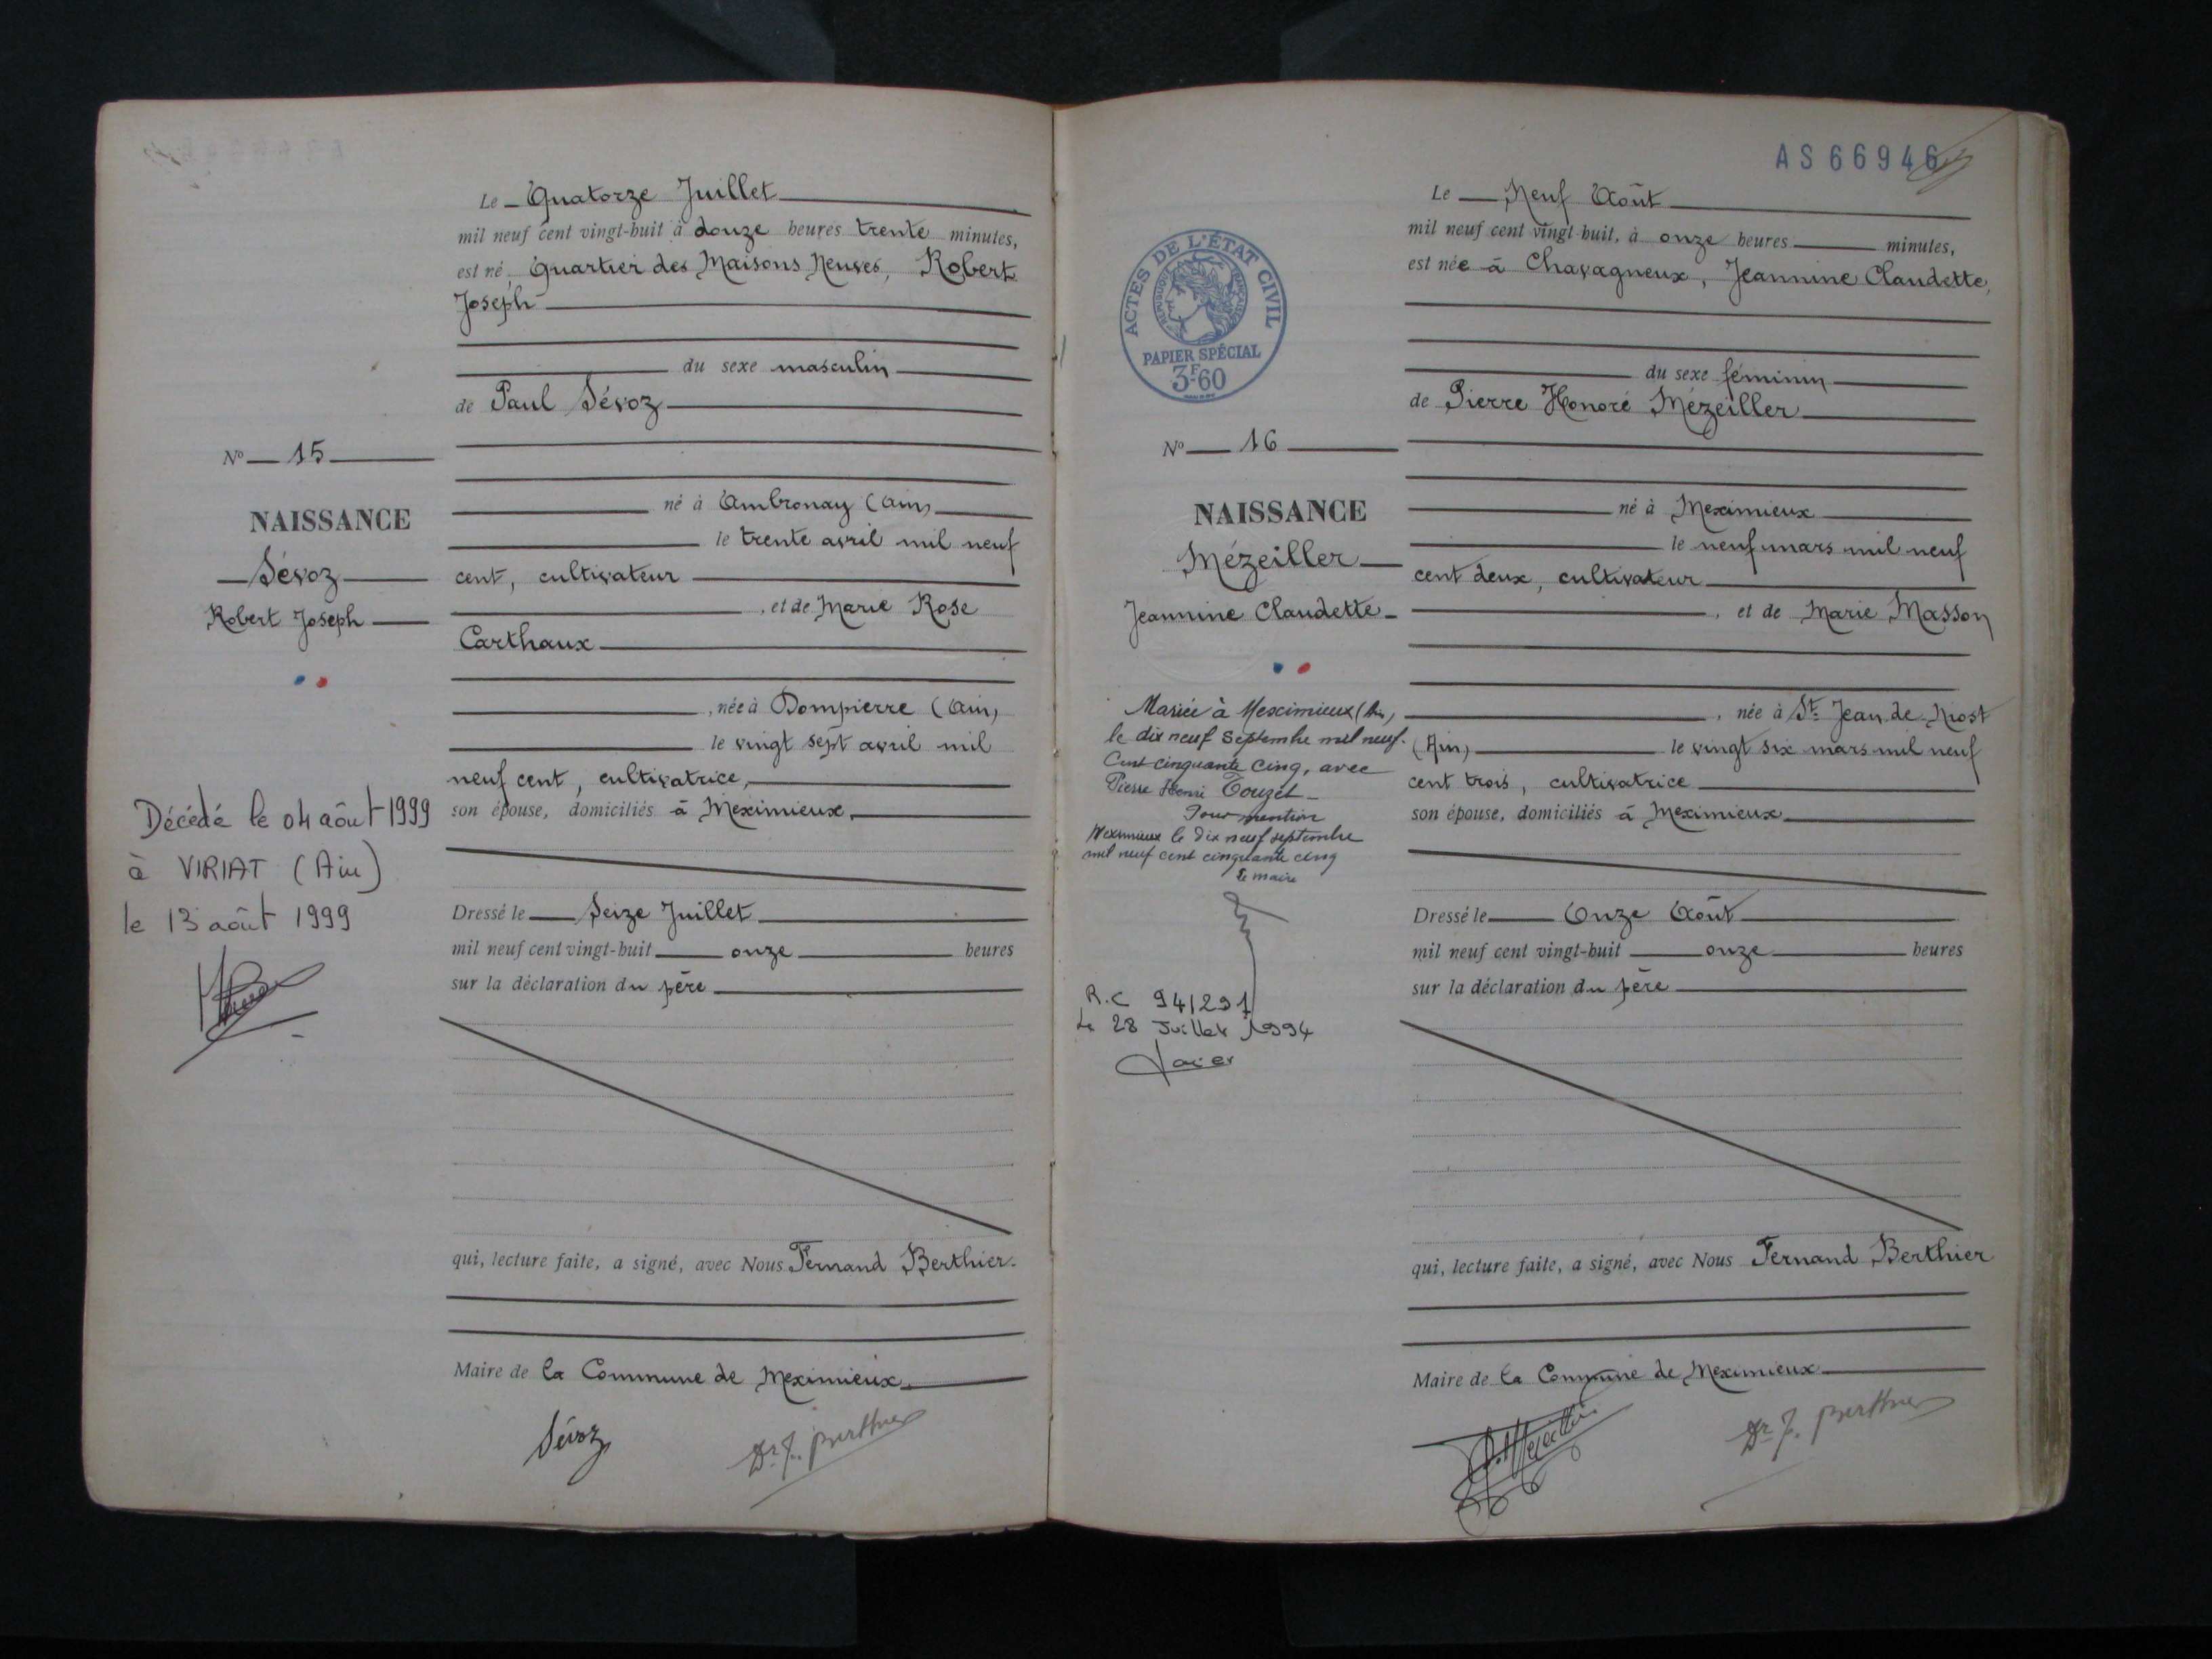 Le Quatorze Juillet
mil neuf cent vingt-huit à douze heures trente minutes,
est né Quartier des Maisons Neuves, Robert
Joseph
du sexe masculin
de Paul Sévoz
né à Ambronay (Ain)
le trente avril mil neuf
cent, cultivateur
, et de Marie Rose
Carthaux
, née à Dompierre (Ain)
le vingt sept avril mil
neuf cent, cultivatrice,
son épouse, domiciliés à Meximieux,
Dressé le Seize Juillet
mil neuf cent vingt-huit onze heures
sur la déclaration du père
qui, lecture faite, a signé, avec Nous Fernand Berthier
Maire de la Commune de Meximieux
Sévoz Dr F. Berthier
No 15
NAISSANCE
Sévoz
Robert Joseph
Décédé le 04 aôut 1999
à VIRIAT (Ain)
le 13 août 1999
AS 66946
Le Neuf Août
mil neuf cent vingt-huit, à onze heures minutes,
est née à Chavagneux, Jeannine Claudette,
du sexe féminin
de Pierre Honoré Mézeiller
né à Meximieux
le neuf mars mil neuf
cent deux, cultivateur
, et de Marie Masson
, née à St. Jean de Niost
(Ain) le vingt six mars mil neuf
cent trois, cultivatrice
son épouse, domiciliés à Meximieux
Dressé le Onze Août
mil neuf cent vingt-huit onze heures
sur la déclaration du père
qui, lecture faite, a signé, avec Nous Fernand Berthier
Maire de la Commune de Meximieux
Dr F. Berthier
ACTES DE L'ÉTAT CIVIL
RÉPUBLIQUE FRANÇAISE
PAPIER SPÉCIAL
3F60
No 16
NAISSANCE
Mézeiller
Jeannine Claudette
Mariée à Meximieux (Ain)
le dix neuf Septembre mil neuf
Cent cinquante cinq, avec
Pierre Henri Touzet
Pour mention
Meximieux le dix neuf septembre
mil neuf cent cinquante cinq
Le maire
R.C 94/291
Le 28 Juillet 1994